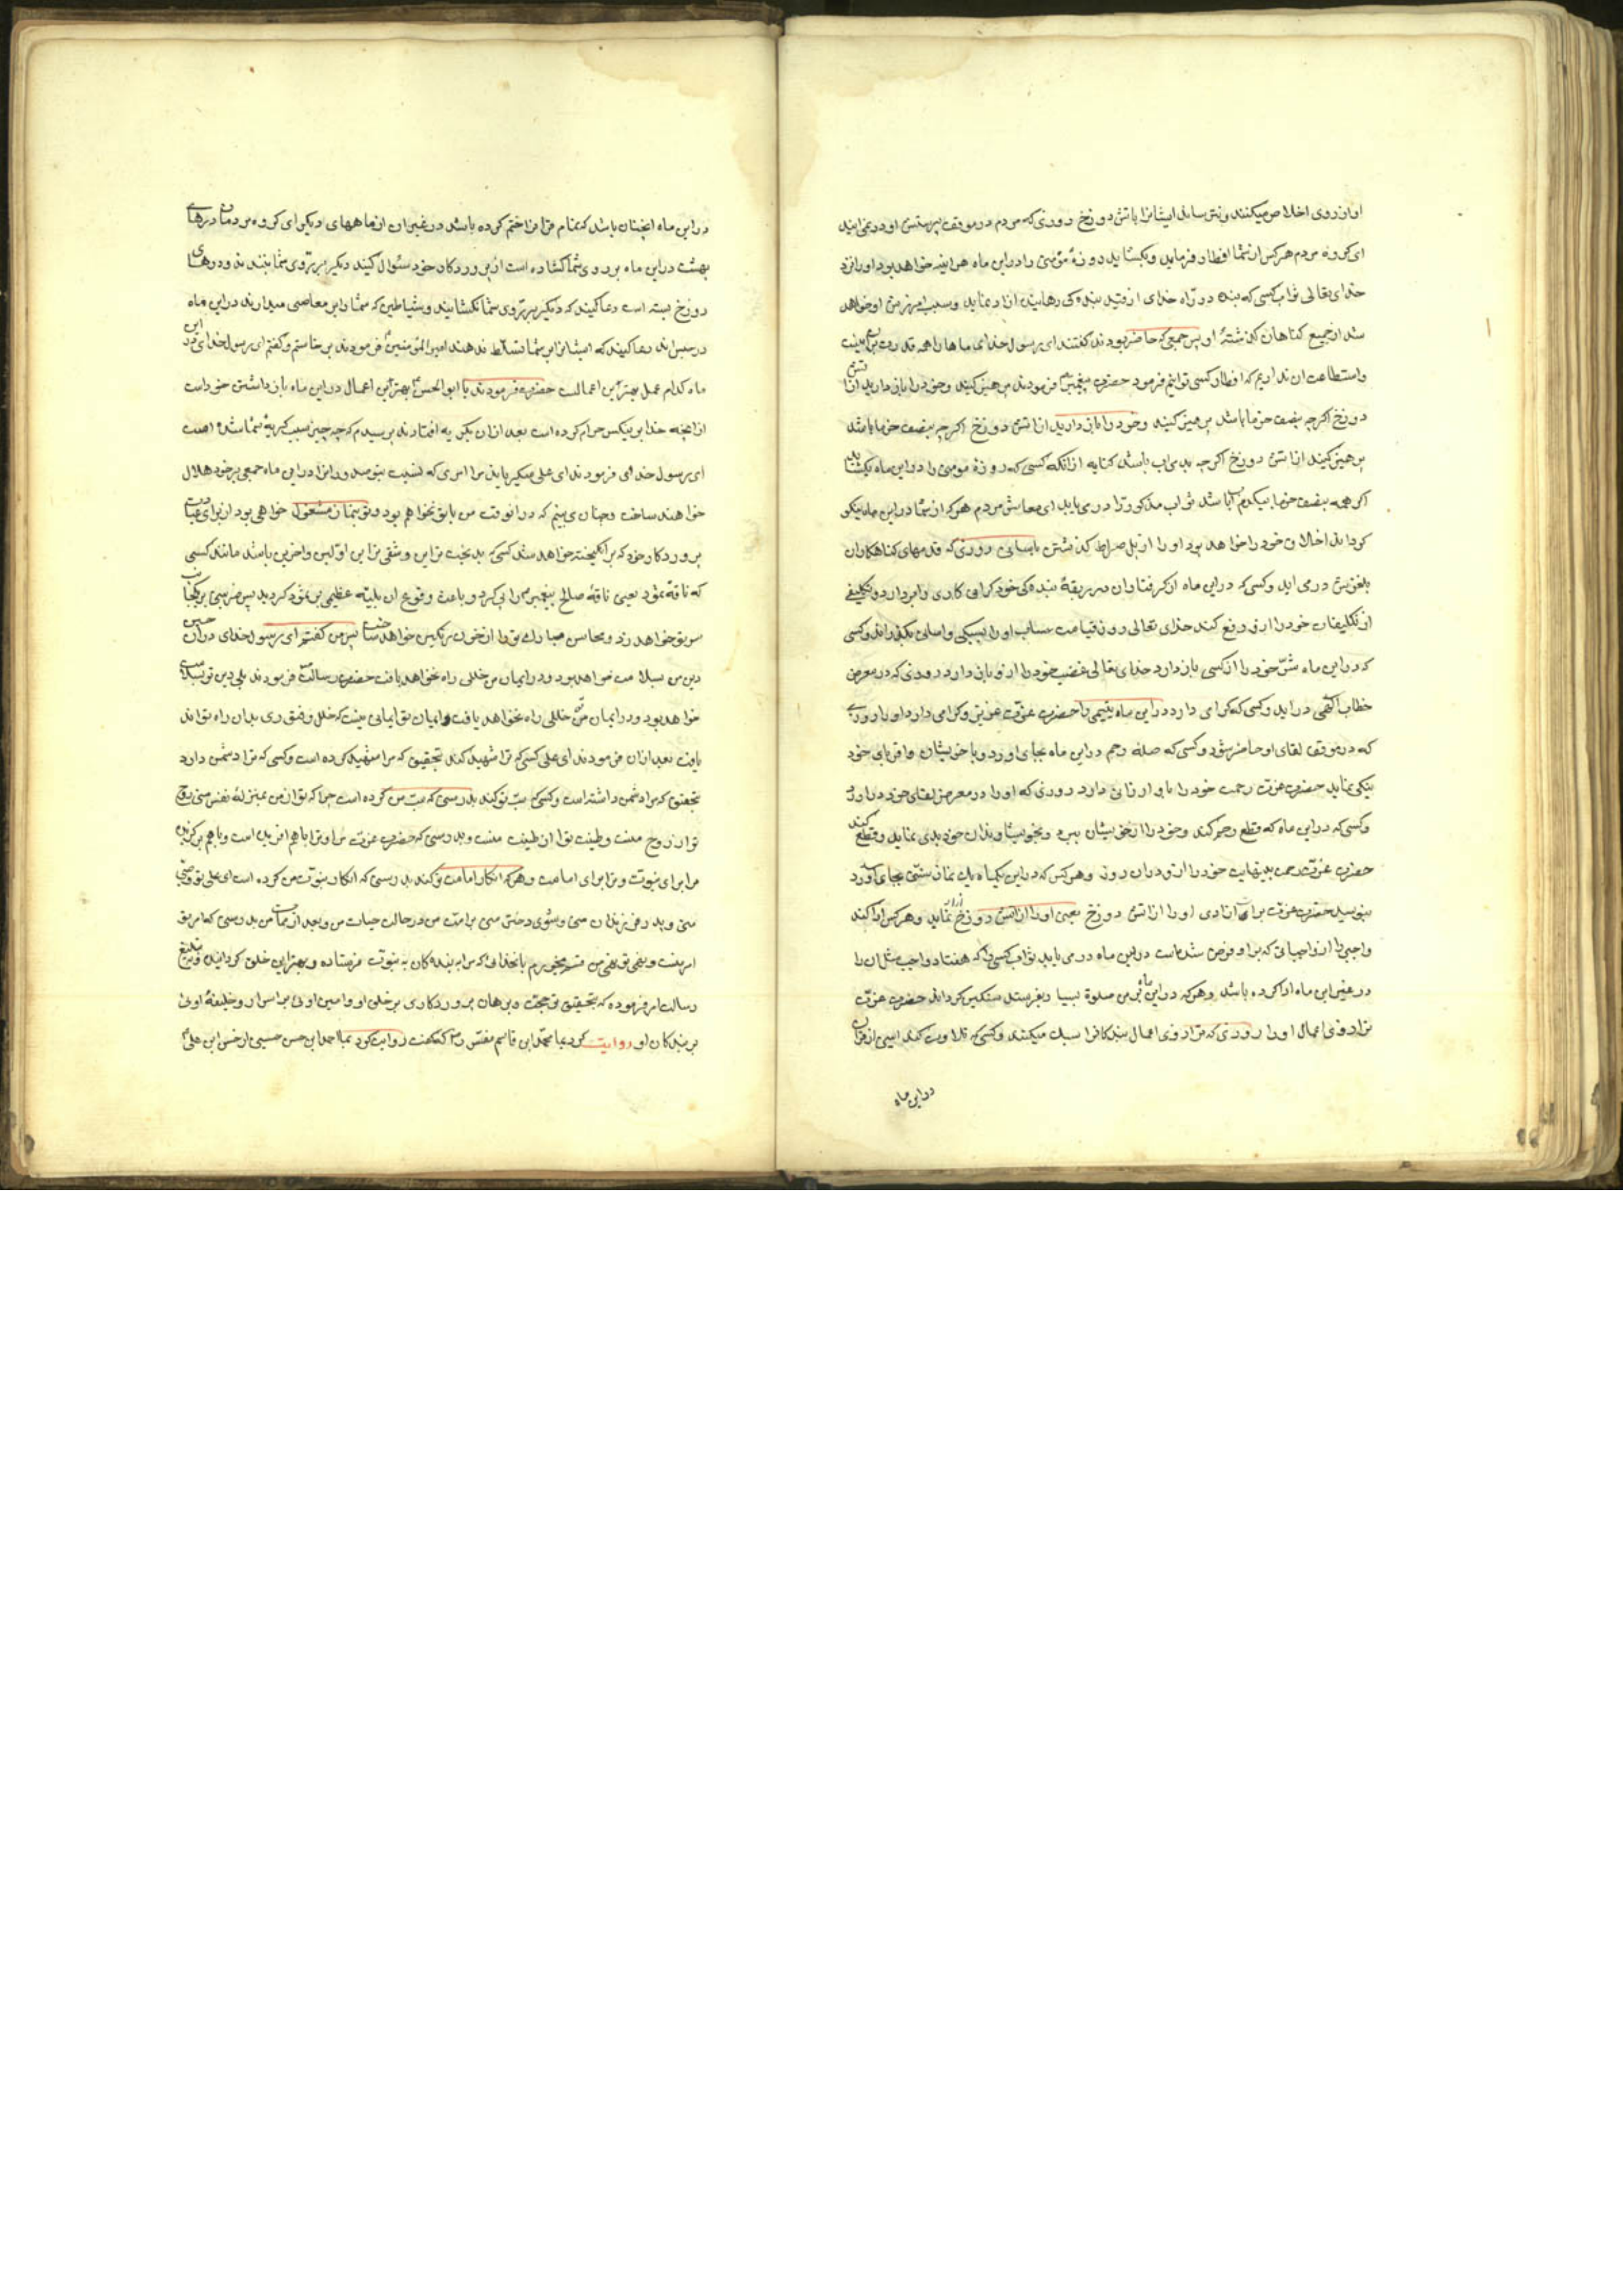 او از روی اخلاص میکنند و نترساند ایشانرا باتش دوزخ روزی که مردم در موقف پرستش او در می ایند
ای کروه مردم هر کس از شما افطار فرماید و بکشاید روزۀ مؤمنی را در این ماه هر اینه خواهد بود او را نزد
خدای تعالی ثواب کسی که بنده در راه خدای از قید بندکی رهانیده ازاد نماید و سبب امرزش او خواهد
شد از جمیع کناهان کذشتۀ او پس جمعی که حاضر بودند کفتند ای رسول خدای ما هارا همه قدرت بران نیست
واستطاعت ان نداریم که افطار کسی توانیم فرمود حضرت پیغمبر فرمودند پرهیز کنید وخود را باز دارید از اتش
دوزخ اکر چه بنصف خرما باشد پرهیز کنید وخود را باز دارید از اتش دوزخ اکر چه بنصف خرما باشد
پرهیز کنید از اتش دوزخ اکر چه بدم اب باشد کنایه از انکه کسی که روزۀ مومنی را در این ماه بکشاید
اکر چه بنصف خرما بیکدم اب باشد ثواب مذکور را در می یابد ای معاشر مردم هر که از شما در این ماه نیکو
کرداند اخلاق خود را خواهد بود او را از پل صراط کذشتن باسانی روزی که قدمهای کناهکاران
بلغزش در می اید وکسی که در این ماه از کرفتاران در ربقۀ بندکی خود کرانی کاری وامر دارد و تکلیفی
از تکلیفات خود را از او رفع کند خدای تعالی روز قیامت حساب او را بسبکی واسانی بکذراند وکسی
که در این ماه شر خود را از کسی باز دارد خدای تعالی غضب خود را از او باز دارد روزی که در معرض
خطاب الهی در اید وکسی که کرامی دارد در این ماه یتیمی را حضرت عزت عزیز وکرامی دارد او را روزی
که در موقف لقای او حاضر شود وکسی که صله رحم در این ماه بجای اورد وبا خویشان واقربای خود
نیکی نماید حضرت عزت رحمت خود را باو ارزانی دارد روزی که او را در معرض لقای خود دراورد
وکسی که در این ماه که قطع رحم کند وخود را از خویشان ببرد وبخویشاوندان خود بدی نماید وقطع کند
حضرت عزت رحمت بینهایت خود را از او در ان روز وهر کس که در این یکماه یک نماز سنتی بجای آورد
بنویسد حضرت عزت برات ازادی او را از اتش دوزخ یعنی او را از اتش دوزخ ازاد نماید وهر کس ادا کند
واجبی را از واجباتی که بر او فرض شده است در این ماه در می یابد ثواب کسی را که هفتاد واجب مثل ان را
در غیر این ماه ادا کرده باشد وهر که در این ماه بر من صلوة بسیار بفرستد سنکین کرداند حضرت عزت
ترازوی اعمال او را روزی که ترازوی اعمال بندکانرا سبک میکنند وکسی که تلاوت کند ایتی از قران
در این ماه
در این ماه انچنان باشد که تمام قرانرا ختم کرده باشد در غیر ان از ماههای دیکر ای کروه مردمان درهای
بهشت در این ماه بر روی شما کشاده است از پروردکار خود سئوال کنید دیکر بر روی شما نبندند ودرهای
دوزخ بسته است دعا کنید که دیکر بر روی شما نکشایند وشیاطین که شما را بر معاصی میدارند در این ماه
در حبس اند دعا کنید که ایشانرا بر شما تسلط ندهند امیر المؤمنین فرمودند برخاستم وکفتم ای رسول خدای در این
ماه کدام عمل بهترین اعمالست حضرت فرمودند یا ابو الحسن بهترین اعمال در این ماه باز داشتن خود است
از انچه خدا بر بیکس حرام کرده است بعد ازان بکریه افتادند پرسیدم که چه چیز سبب کریۀ شما شد
ای رسول خدای فرمودند ای علی میکریاند مرا امری که نسبت بتو صدور انرا در این ماه جمعی بر خود حلال
خواهند ساخت وچنان می بینم که در انوقت من با تو نخواهم بود وتو بنماز مشغول خواهی بود از برای عبادت
پروردکار خود که برانکیخته خواهد شد کسی که بدبخت ترین وشقی ترین اولین واخرین باشد مانند کسی
که ناقۀ ثمود یعنی ناقۀ صالح پیغمبر را پی کرد و باعث وقوع ان بلیّه عظیمی بر ثمود کردید پس ضربتی بر یکجانب
سر تو خواهد زد ومحاسن مبارک تو را از خون رنکین خواهد ساخت پس من کفتم ای رسول خدای در ان حین
دین من بسلامت خواهد بود و در ایمان من خللی راه نخواهد یافت حضرت رسالت فرمودند بلی دین تو بسلامت
خواهد بود ودر ایمان تو خللی راه نخواهد یافت وایمان تو ایمانی نیست که خلل وفتوری بدان راه تواند
یافت بعد ازان فرمودند ای علی کسی که ترا شهید کند بتحقیق که مرا شهید کرده است وکسی که ترا دشمن دارد
بتحقیق که مرا دشمن داشته است وکسی که سب تو کند بدرستی که سب من کرده است چرا که تو از من بمنزلۀ نفس منی روح
تو از روح منست وطینت تو از طینت منست وبدرستی که حضرت عزت مرا وترا باهم افریده است وباهم برکزیده
مرا برای نبوت وترا برای امامت وهر که انکار امامت تو کند بدرستی که انکار نبوت من کرده است ای علی تو وصی
منی وپدر فرزندان منی وشوی دختر منی بر امت من در حالت حیات من وبعد از ممات من بدرستی که امر تو
امر منست ونهی تو نهی من قسم میخورم بانخدائی که مرا به بندکان به نبوت فرستاده وبهترین خلق کردانیده وبتبلیغ
رسالت امر فرموده که بتحقیق تو حجت وبرهان پروردکاری بر خلق او وامین اوئی بر اسرار وخلیفۀ اوئی
بر بندکان او روایت کرد بما محمد ابن قاسم مفسّر که کفت روایت کرد بما احمد ابن حسن حسینی از حسن ابن علی